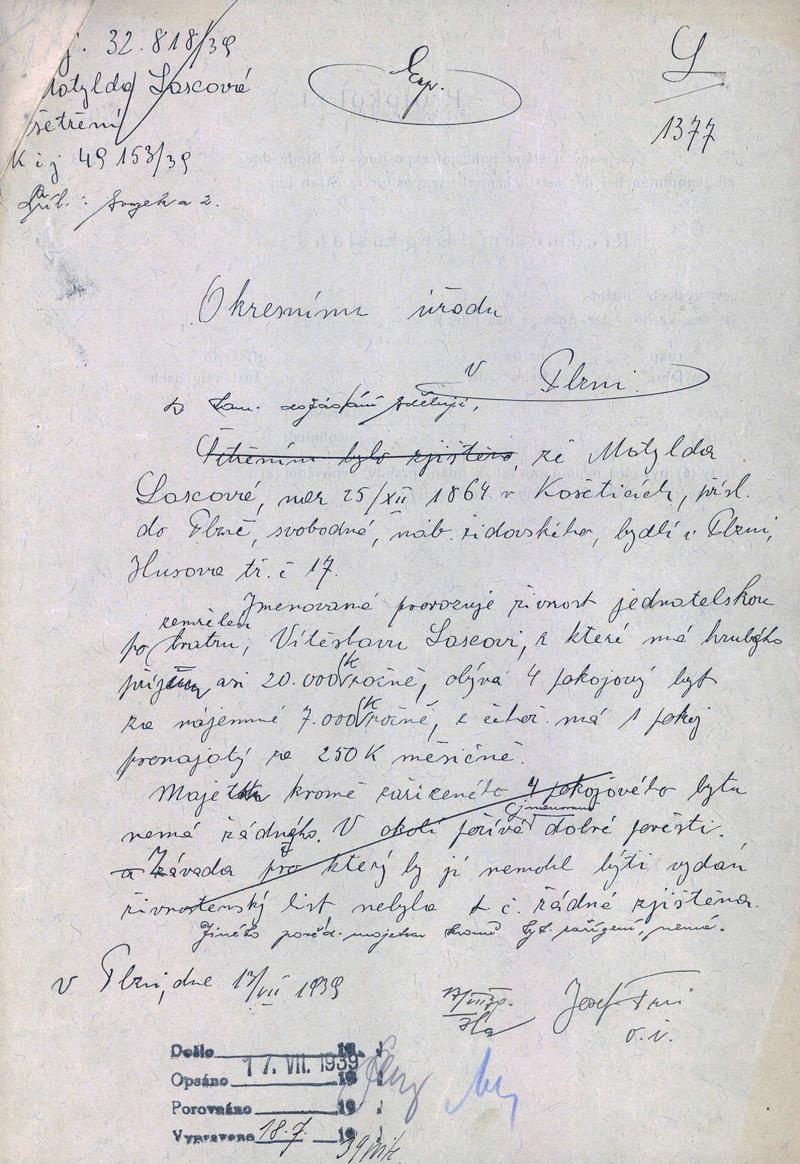 j. 32.818/39
Matylda Lascové
šetření
K čj 49 153/39
Příl.: 2.
Exp.
L
1377
Okresnímu úřadu
v Plzni.
K tam. dožádání sděluji,
Šetřením bylo zjištěno, že Matylda
Lascové, nar 25/XII 1864 v Košeticích, přísl.
do Plzně, svobodná, náb. židovského, bydlí v Plzni,
Husova tř. č 17.
Jmenovaná provozuje živnost jednatelskou
po zemřelém bratru, Vítěslavu Lascovi, z které má hrubého
příjmu asi 20.000 K ročně, obývá 4 pokojový byt
za nájemné 7.000 K ročně, z čehož má 1 pokoj
pronajatý za 250 K měsíčně.
Majetku kromě zařízeného 4 pokojového bytu
nemá žádného. V okolí požívá jmenovaná dobré pověsti.
a Závada pro který by jí nemohl býti vydán
živnostenský list nebyla t. č. žádná zjištěna.
Jiného majetku kromě byt. zařízení, nemá.
V Plzni, dne 13/VII 1939
17/VII 39.
Josef
o.i.
Došlo 19
17. VII. 1939
Opsáno 19
Porovnáno 19
Vypraveno 18.7. 19
39